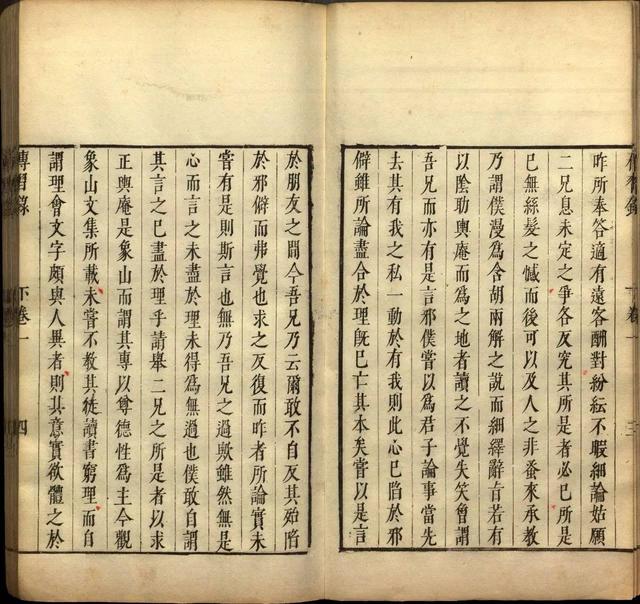 昨所奉答適有遠客酬對紛紜不暇細論姑願
二兄息未定之爭各反究其所是者必己所是
已無絲髮之憾而後可以及人之非蚤來承教
乃謂僕漫為含胡兩解之說而細繹辭旨若有
以陰助輿庵而為之地者讀之不覺失笑曾謂
吾兄而亦有是言邪僕嘗以為君子論事當先
去其有我之私一動於有我則此心已陷於邪
僻雖所論盡合於理既已亡其本矣嘗以是言
於朋友之間今吾兄乃云爾敢不自反其殆陷
於邪僻而弗覺也求之反復而昨者所論實未
嘗有是則斯言也無乃吾兄之過歟雖然無是
心而言之未盡於理未得為無過也僕敢自謂
其言之已盡於理乎請舉二兄之所是者以求
正輿庵是象山而謂其專以尊德性為主今觀
象山文集所載未嘗不教其徒讀書窮理而自
謂理會文字頗與人異者則其意實欲體之於
傳習錄 下卷一 四